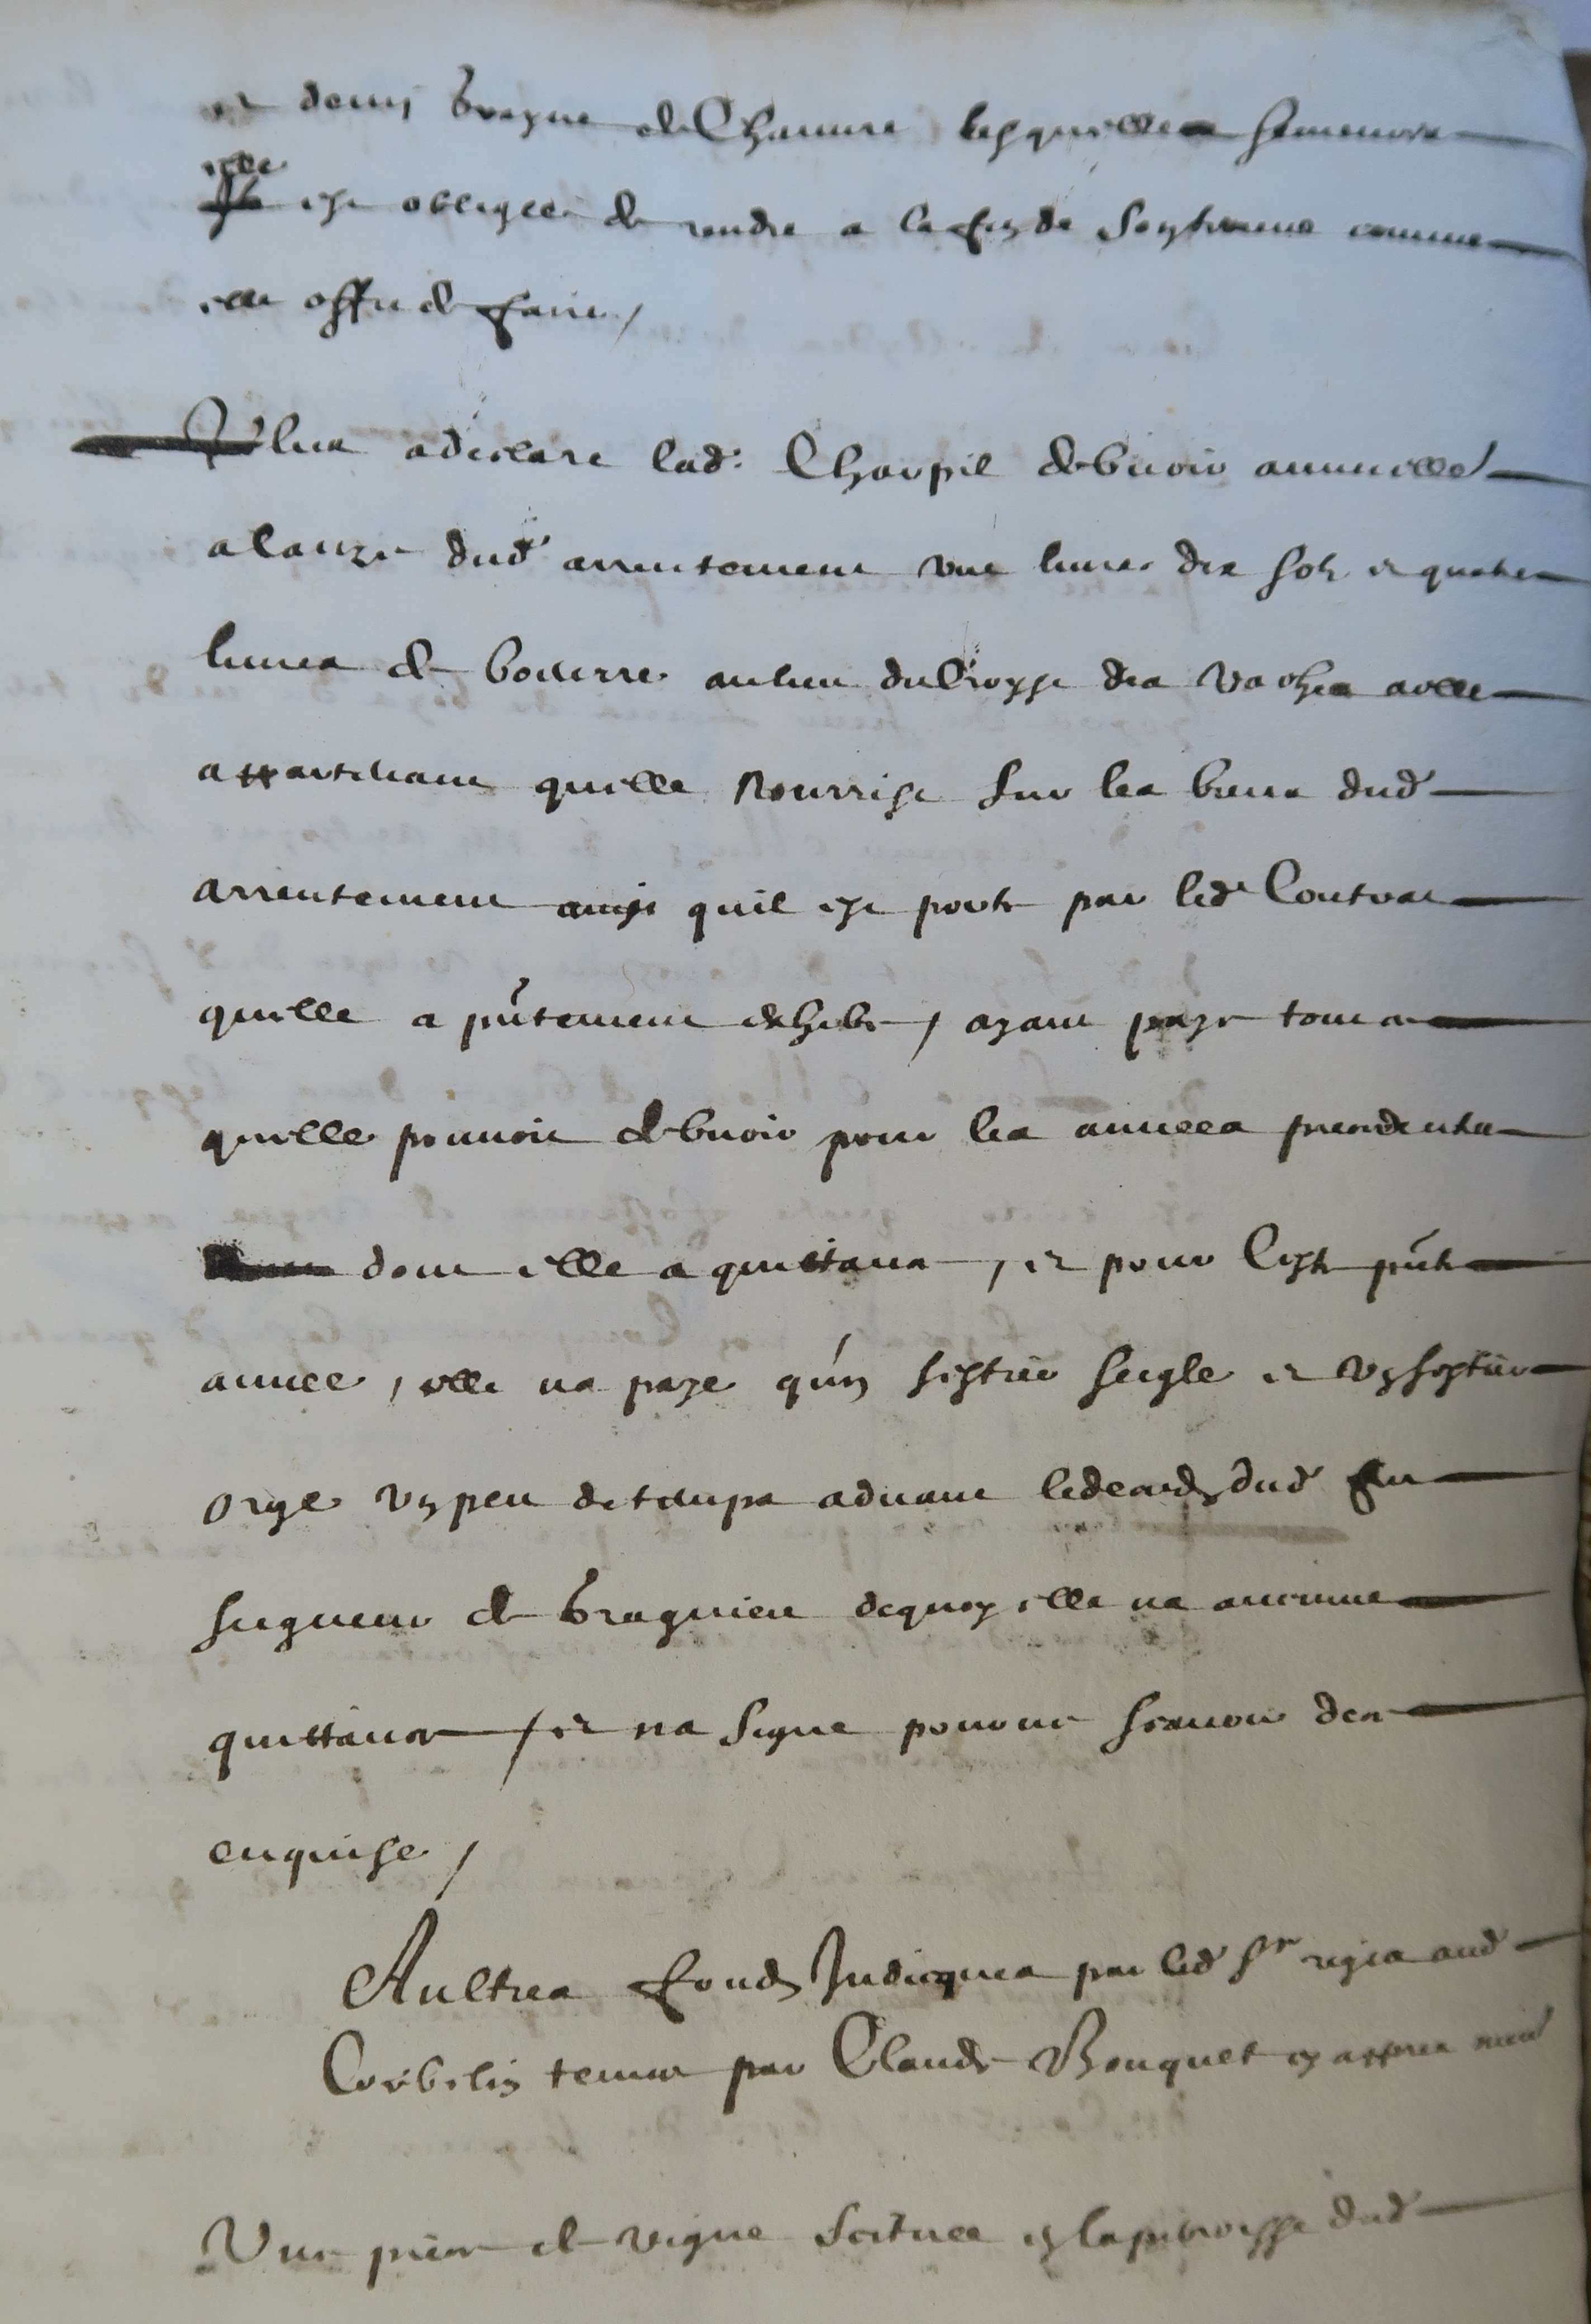 et demy brayne de Chanure lesquelles semences
elle
est obligee de rendre a la fin de son terme comme
elle offre de faire /
Plus a declare lad. Choupil debuoir annuellemt
a cause dud arrentement une liure dix solz et quatre
liures de beurre au lieu du croyst des vaches a elle
appartenant quelle nourrist sur les biens dud
arrentement ainsi quil est porte par led Contrat
quelle a pntement exhibe / ayant paye tout ce
quelle pouuoit debuoir pour les annees precedentes
dont elle a quittance, et pour ceste pnte
annee, elle na paye qu'un sestier seigle et un sestier
orge un peu de temps aduant le deces dud feu
seigneur de Bragnieu dequoy elle na aucune
quittance / et na signe pour ne scauoir de ce
enquise /
Aultres fonds Indicques par led Sr riere aud
Corbelin tenus par Claude Bouquet
Une piece de vigne scituee en la parroisse dud